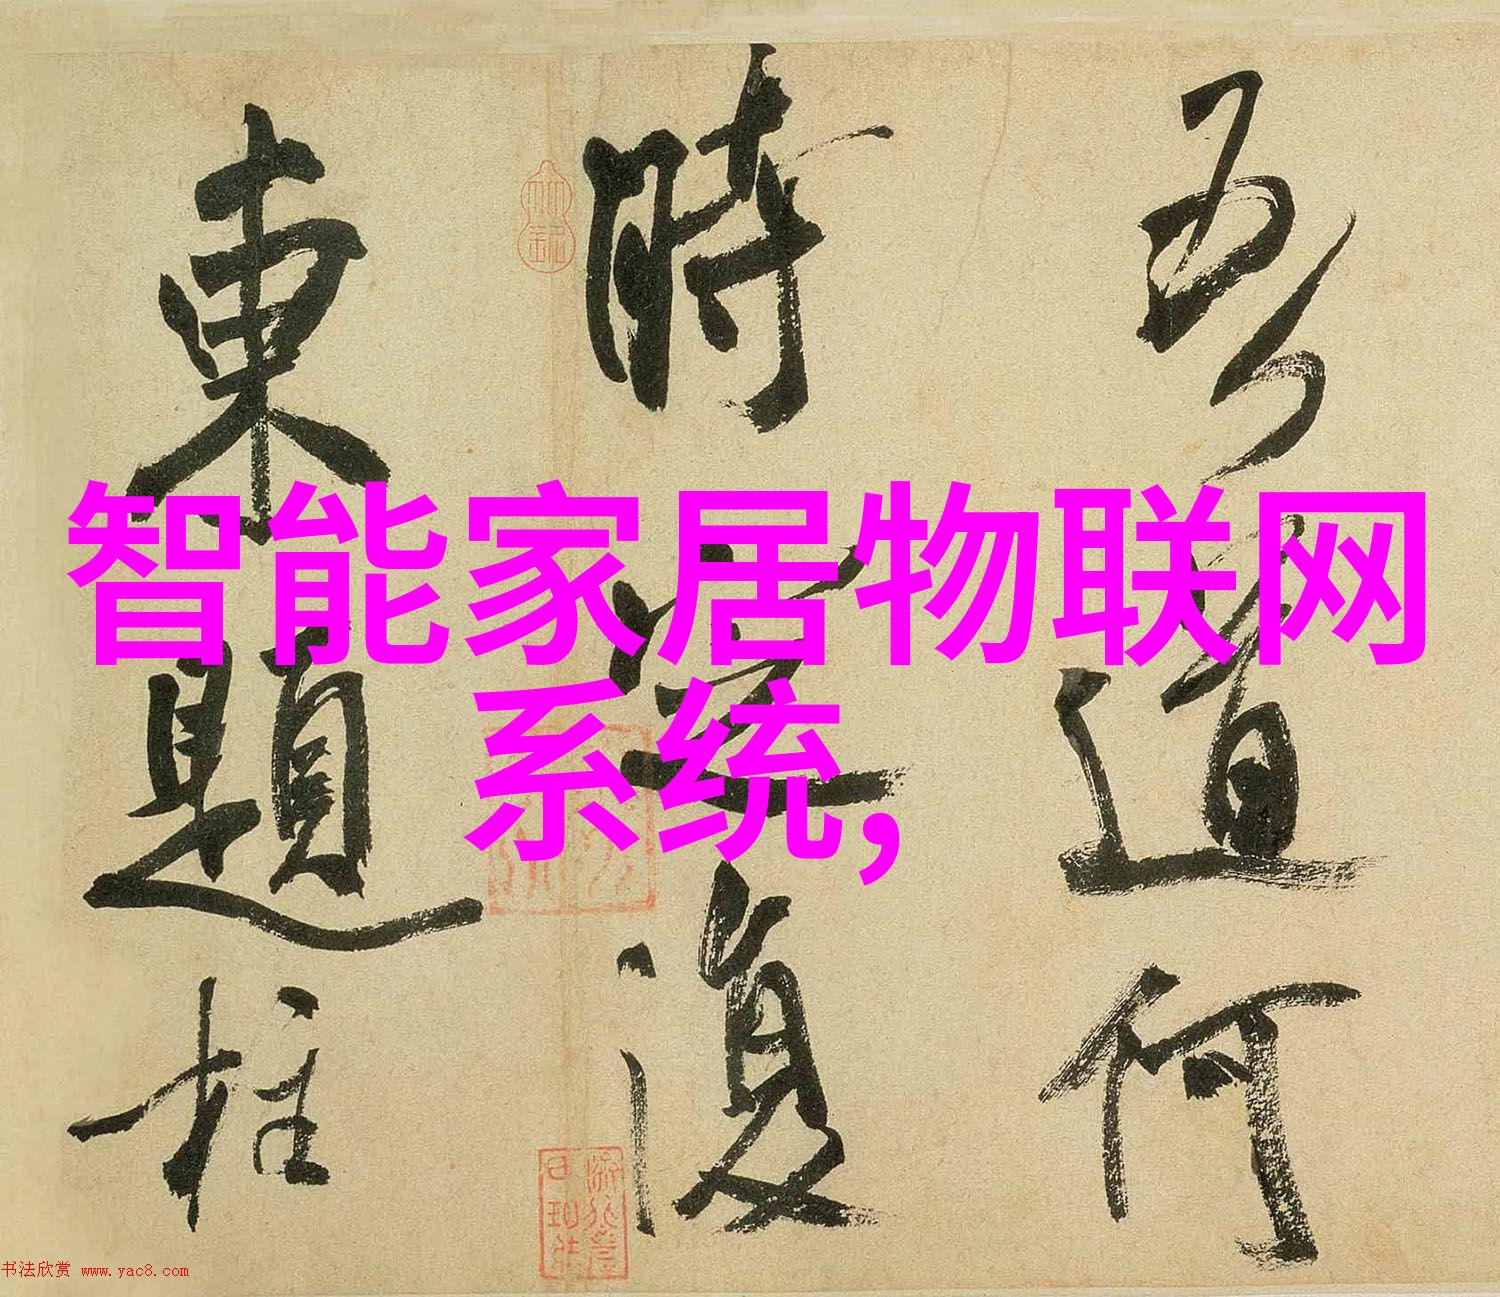 智能家居物联网
系统,
吾道何
時定復
東題柱
书法欣赏 www.yac8.com